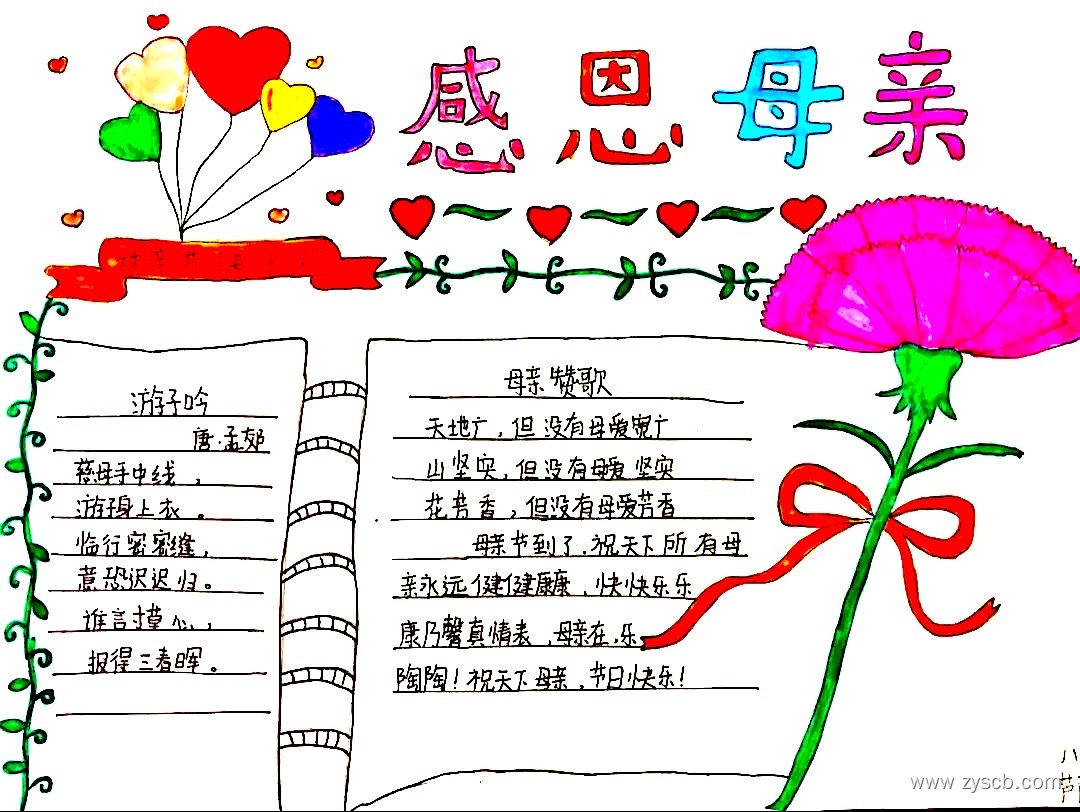 感恩母亲
游子吟
唐·孟郊
慈母手中线，
游子身上衣。
临行密密缝，
意恐迟迟归。
谁言寸草心，
报得三春晖。
母亲赞歌
天地广，但没有母爱宽广
山坚实，但没有母爱坚实
花芳香，但没有母爱芳香
母亲节到了，祝天下所有母
亲永远健健康康，快快乐乐
康乃馨真情表，母亲在，乐
陶陶！祝天下母亲，节日快乐！
www.zyscb.com